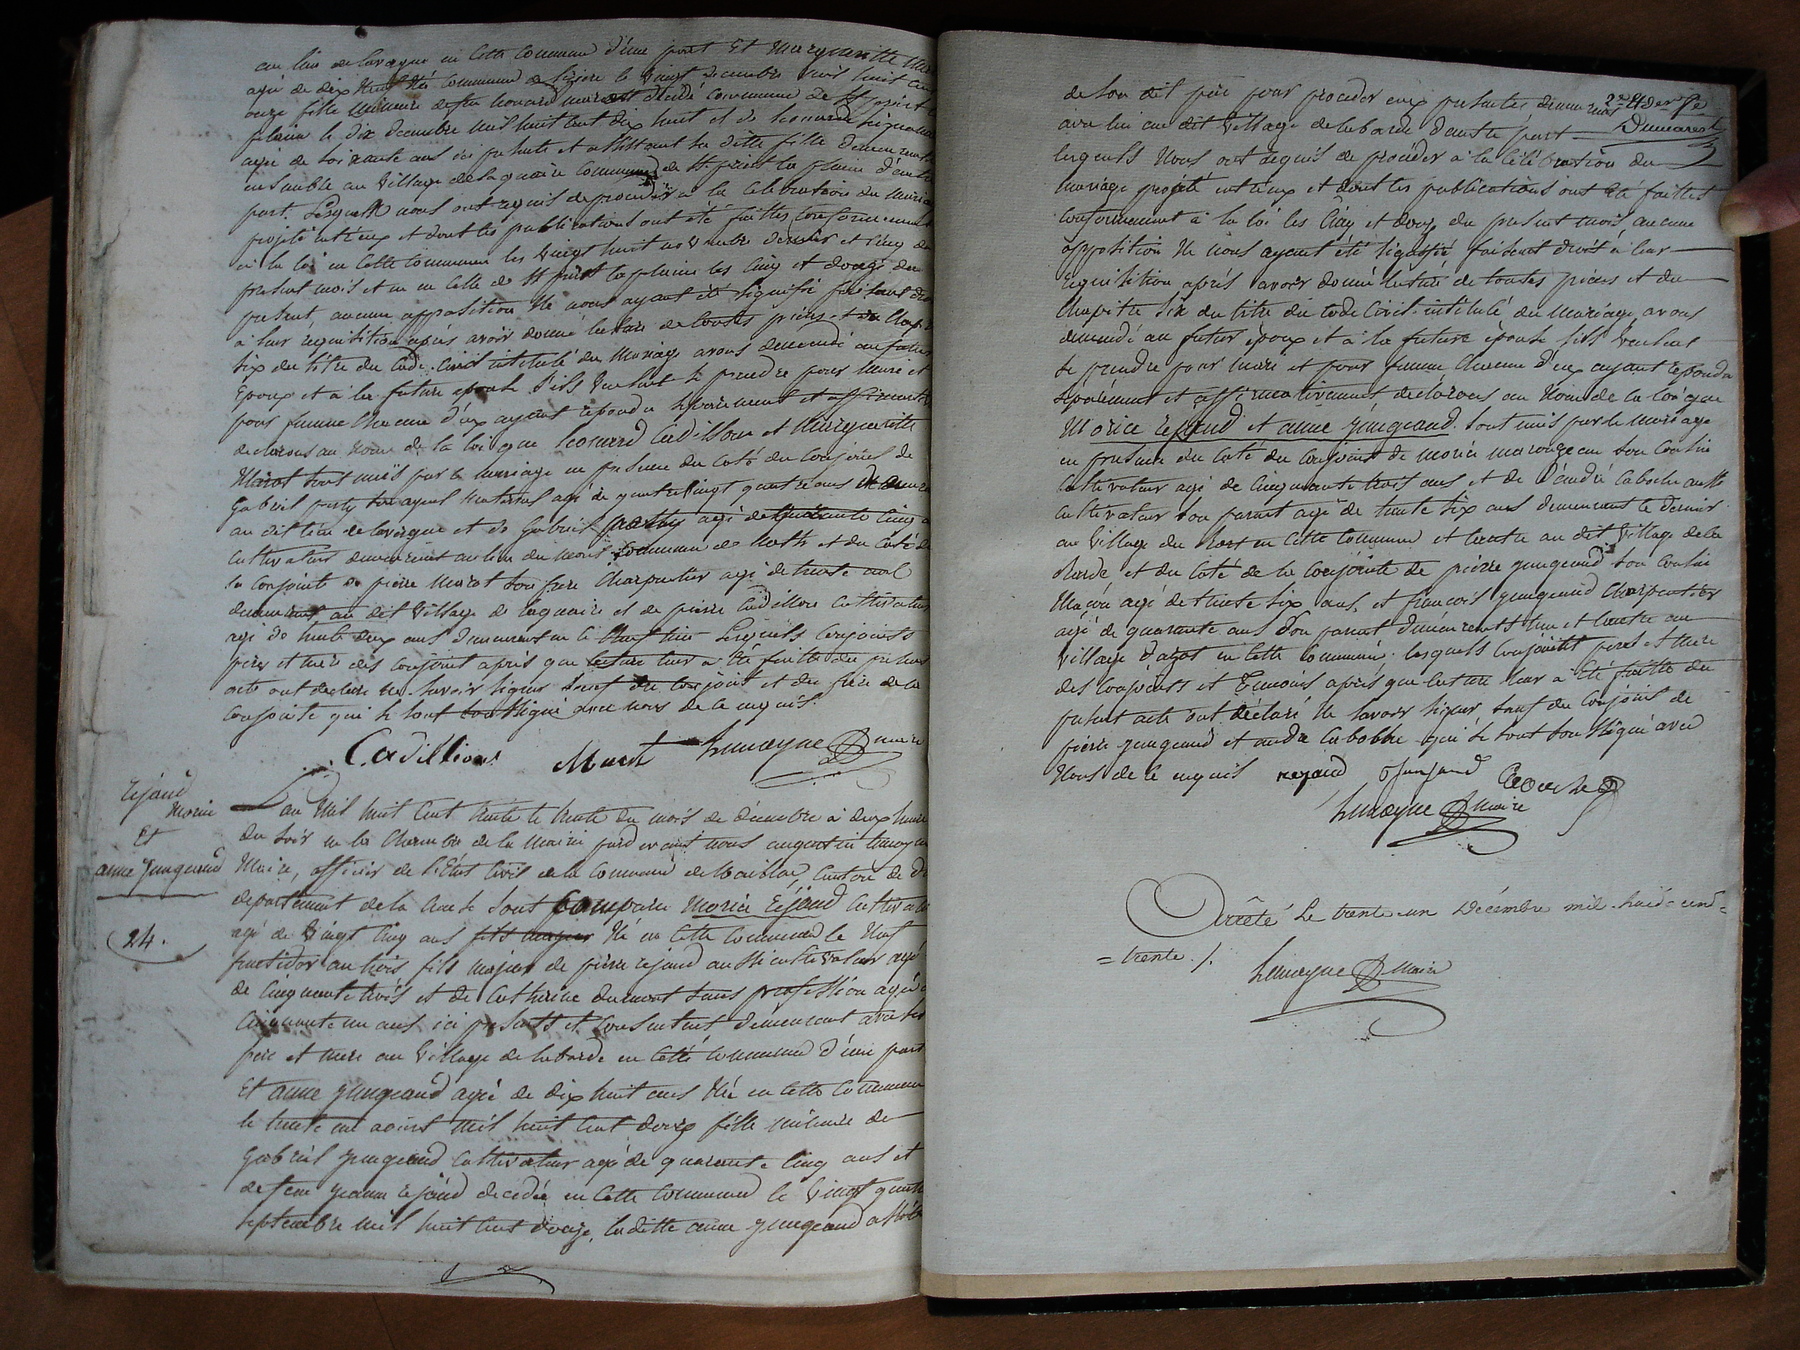 au lieu de lavergne en cette commune d'une part Et Margueritte
agé de dix neuf Né commune de le vingt decembre mil huit cent
onze fille mineure de feu leonard marot decédé commune de St priest
plaine le dix decembre mil huit cent dix huit et de leonarde
agée de soixante ans ici presente et assistant sa ditte fille demeurant
ensemble au village de la quaire commune de St priest la plaine d'autre
part. Lesquels nous ont requis de proceder a la celebration du mariage
projeté entr'eux et dont les publications ont été faittes conformement
a la loi en cette commune les vingt huit novembre dernier et cinq du
present mois et en celle de St priest la plaine les cinq et douze du
present, aucune opposition Ne nous ayant été signifié faisant droit
a leur réquisition après avoir donné lecture de touttes pieces et du Chapitre
six du titre du Code Civil intitulé du Mariage avons demandé au futur
Epoux et a la future epouse s'ils veulent se prendre pour mari et
pour femme chacun d'eux ayant repondu séparement et affirmativement
declarons au nom de la loi que leonard Cadillon et Marguerite
Marot sont unis par le mariage en presence du coté du conjoint de
Gabriel son ayeul maternel agé de quatre vingt quatre ans demeurant
au dit lieu de lavergne et de Gabriel agé de quarante cinq
cultivateur demeurant au lieu du mons commune de Noth et du coté de
la conjointe de pierre Marot son frere Charpentier agé de trente ans
demeurant au dit village de laquaire et de pierre Cadillon cultivateur
agé de trente deux ans demeurant en Lesquels conjoints
pères et mère des conjoint après que lecture leur a été faitte du present
acte ont declaré ne savoir signer sauf du conjoint et du frère de la
conjointe qui se sont soussigné avec nous de ce enquis.
Cadillion Marot Lemoyne maire
rejaud
Morice
Et
anne jungeaud
24.
L'an Mil huit cent trente le trente du mois de décembre à deux heures
du soir en la chambre de la Mairie pardevant nous augustin lemoyne
Maire, officier de l'état Civil de la commune de Naillac, Canton de
departement de la creuse sont comparu Morice Rejaud cultivateur
agé de vingt cinq ans fils majeur Né en cette commune le Neuf
fructidor an treis fils majeur de pierre rejaud aussi cultivateur agé
de cinquante trois et de Catherine dumont sans profession agée de
cinquante un ans ici presents et consentant demeurant avec ses
père et mere au village de laborde en cette commune d'une part
Et anne jungeaud agé de dix huit ans Né en cette commune
le trente un aoust mil huit cent douze fille mineure de
Gabriel jungeaud cultivateur agé de quarante cinq ans et
de feue jeanne rejaud decedée en cette commune le vingt quatre
septembre mil huit cent douze, laditte anne jungeaud assisté
2me et der re
Dumarest
de son dit père pour proceder aux presentes demeurant
avec lui au dit village de laborde d'autre part
lesquels Nous ont requis de procéder a la célébration du
Mariage projeté entr'eux et dont les publications ont été faittes
conformement à la loi les cinq et douze du present mois, aucune
opposition Ne nous ayant été signifié faisant droit a leur
requisition après avoir donné lecture de toutes pieces et du
Chapitre six du titre du Code Civil intitulé du Mariage avons
demandé au futur époux et à la future épouse s'ils veulent
se prendre pour mari et pour femme chacun d'eux ayant repondu
séparement et affirmativement declarons au Nom de la loi que
Morice rejaud et anne jungeaud. sont unis par le mariage
en presence du coté du conjoint de morice marougeau son cousin
cultivateur agé de cinquante trois ans et de D'andré caboche aussi
cultivateur son parent agé de trente six ans demeurant le dernier
au village du Mont en cette commune et l'autre au dit village de la
Borde et du coté de la conjointe de pierre jungeaud son cousin
Maçon agé de trente six ans, et francois jungeaud Charpentier
agé de quarante ans son parent demeurants l'un et l'autre au
village d'azat en cette commune. lesquels conjoints pere et mere
des conjoints et Temoins après que lecture leur a été faitte du
present acte ont déclaré Ne savoir signer, sauf du conjoint de
pierre jungeaud et andre caboche qui se sont soussigné avec
Nous de ce enquis rejaud Jungeaud Caboche
Lemoyne maire
Arrêté le trente un Décembre mil huit cent
trente ./.
Lemoyne Maire